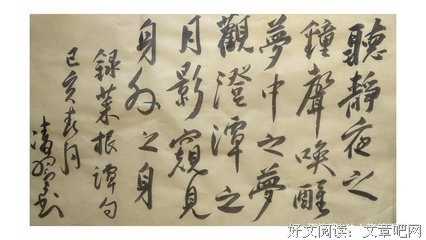 聽靜夜之
鐘聲喚醒
夢中之夢
觀澄潭之
月影窺見
身外之身
録菜根譚句
己亥春月
好文阅读:文章吧网